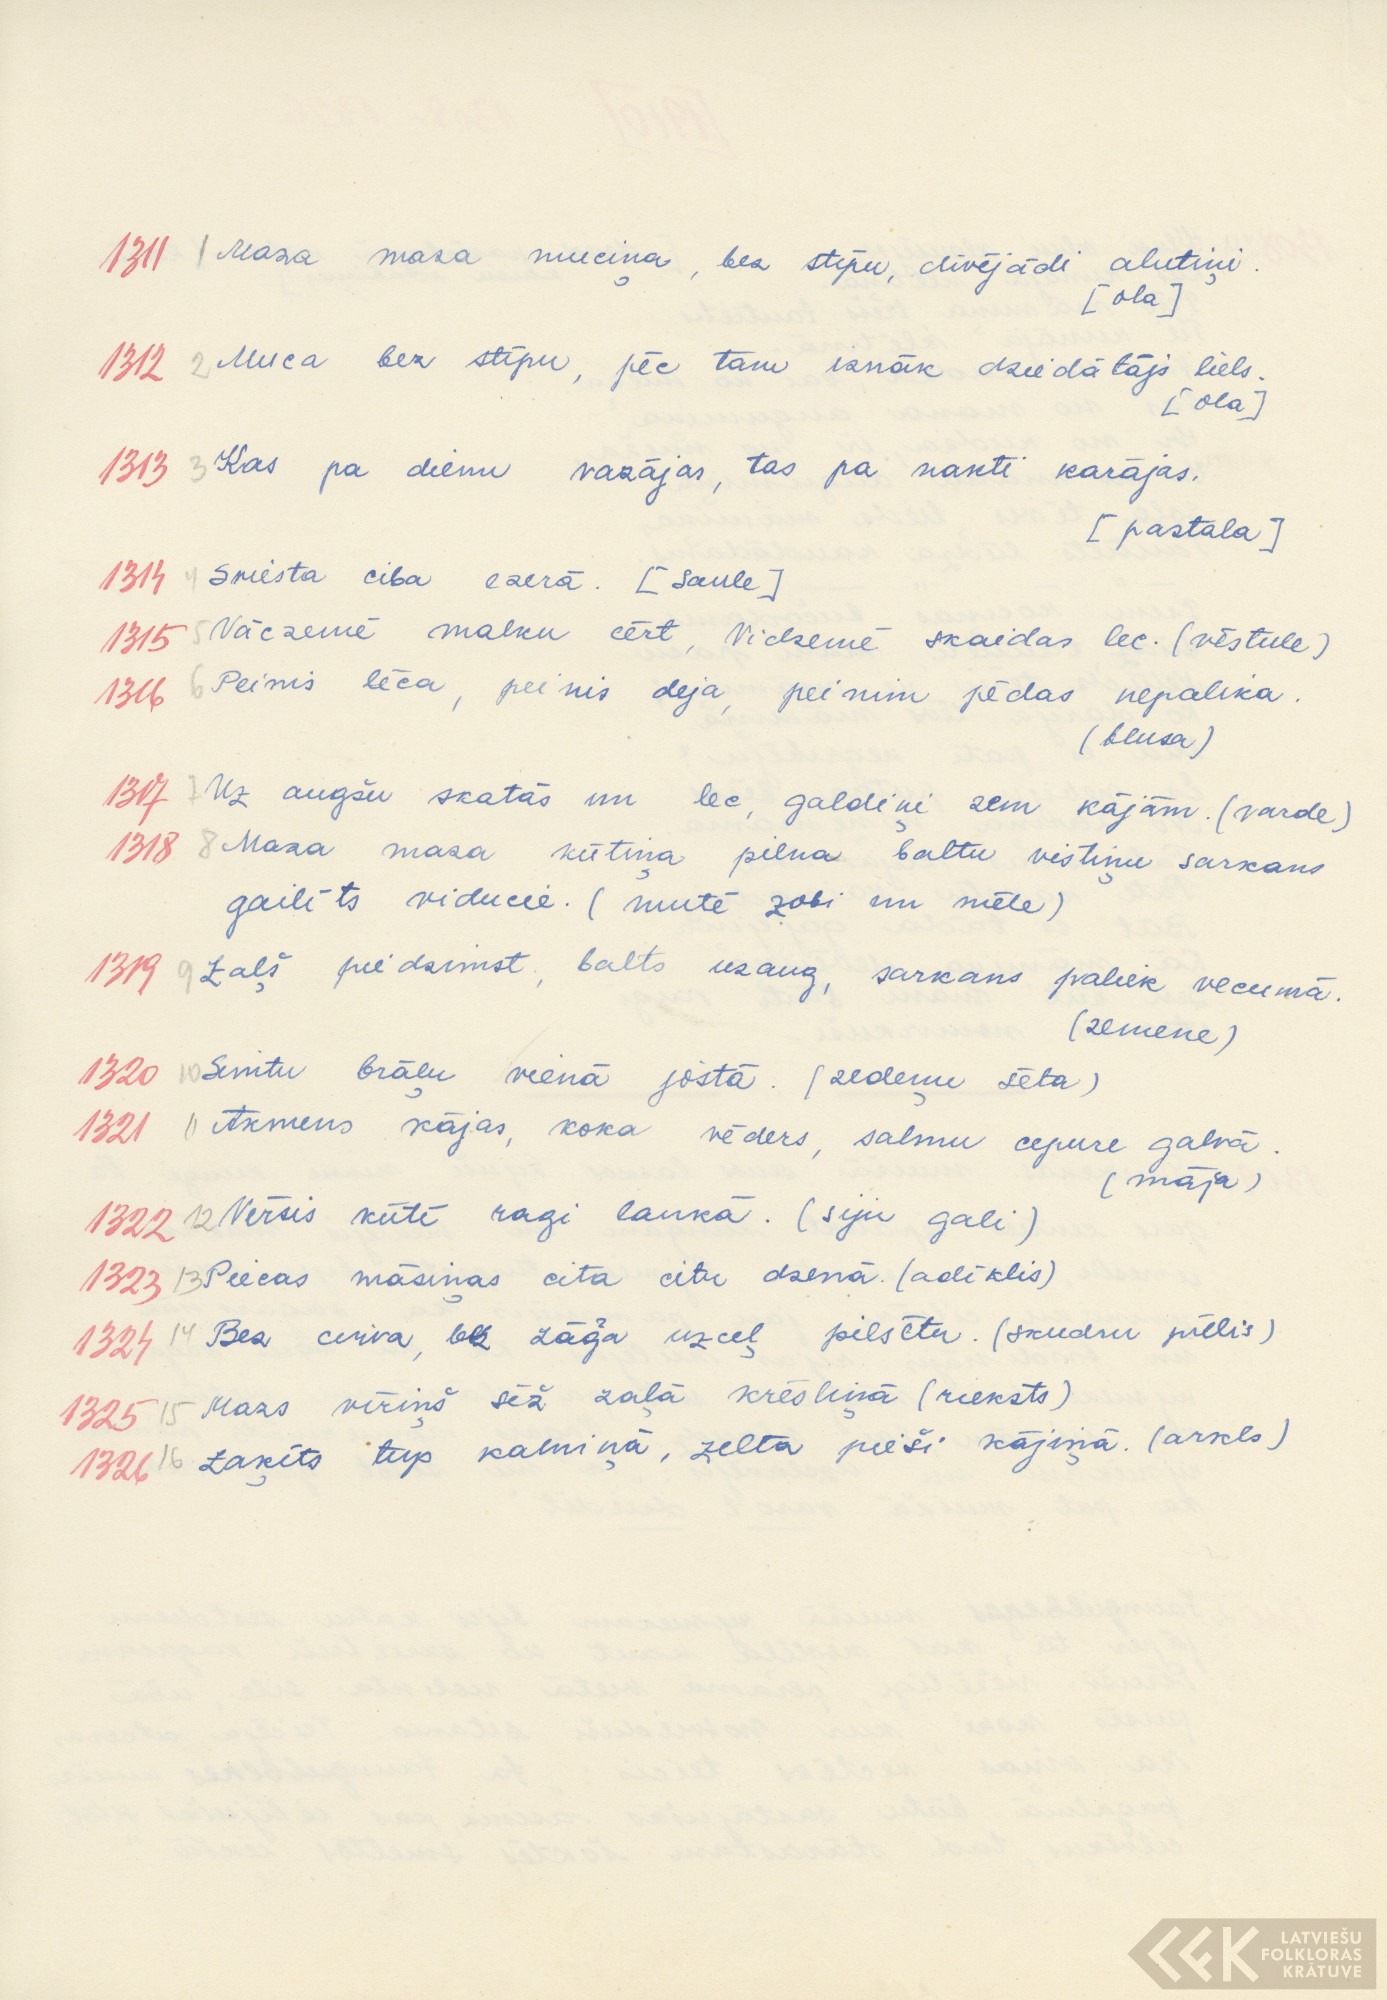 1311 1 Maza maza muciņa, bez stīpu, divējādi alutiņi.
[ola]
1312 2 Muca bez stīpu, pēc tam iznāk dziedātājs liels.
[ola]
1313 3 Kas pa dienu vazājas, tas pa nakti karājas.
[pastala]
1314 4 Sviesta ciba ezerā. [saule]
1315 5 Vāczemē malku cērt, Vidzemē skaidas lec. (vēstule)
1316 6 Peinis lēca, peinis deja, peinim pēdas nepalika.
(blusa)
1317 7 Uz augšu skatās un lec, galdiņi zem kājām. (varde)
1318 8 Maza maza kūtiņa pilna baltu vistiņu sarkans
gailīts viducie. (mutē zobi un mēle)
1319 9 Zaļš piedzimst, balts uzaug, sarkans paliek vecumā.
(zemene)
1320 10 Simtu brāļu vienā jostā. (zedeņu sēta)
1321 11 Akmens kājas, koka vēders, salmu cepure galvā.
(māja)
1322 12 Vērsis kūtē ragi laukā. (siju gali)
1323 13 Piecas māsiņas cita citu dzenā. (adīklis)
1324 14 Bez cirva, bez zāģa uzceļ pilsētu. (skudru pūlis)
1325 15 Mazs vīriņš sēž zaļā krēsliņā (rieksts)
1326 16 Zaķīts tup kalniņā, zelta pieši kājiņā. (arkls)
LATVIEŠU
FOLKLORAS
KRĀTUVE